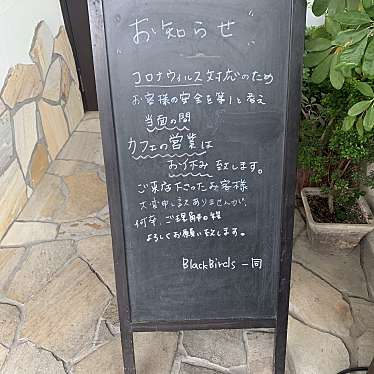 "お知らせ"
コロナウィルス対応のため
お客様の安全を第1と考え
当面の間
カフェの営業は
お休み致します。
ご来店下さったお客様
大変申し訳ありませんが、
何卒、ご理解の程
よろしくお願い致します。
BlackBirds 一同